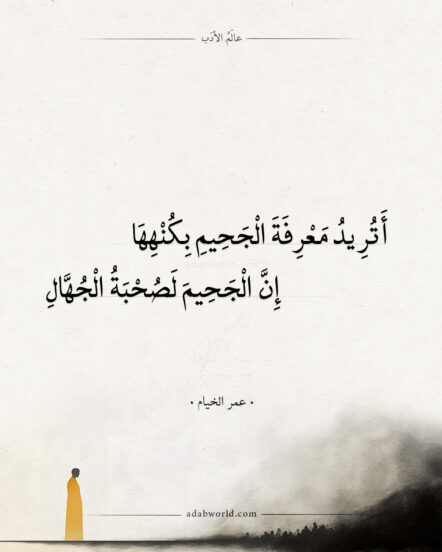 عالَمُ الأدَب
أَتُرِيدُ مَعْرِفَةَ الْجَحِيمِ بِكُنْهِهَا
إِنَّ الْجَحِيمَ لَصُحْبَةُ الْجُهَّالِ
• عمر الخيام •
adabworld.com